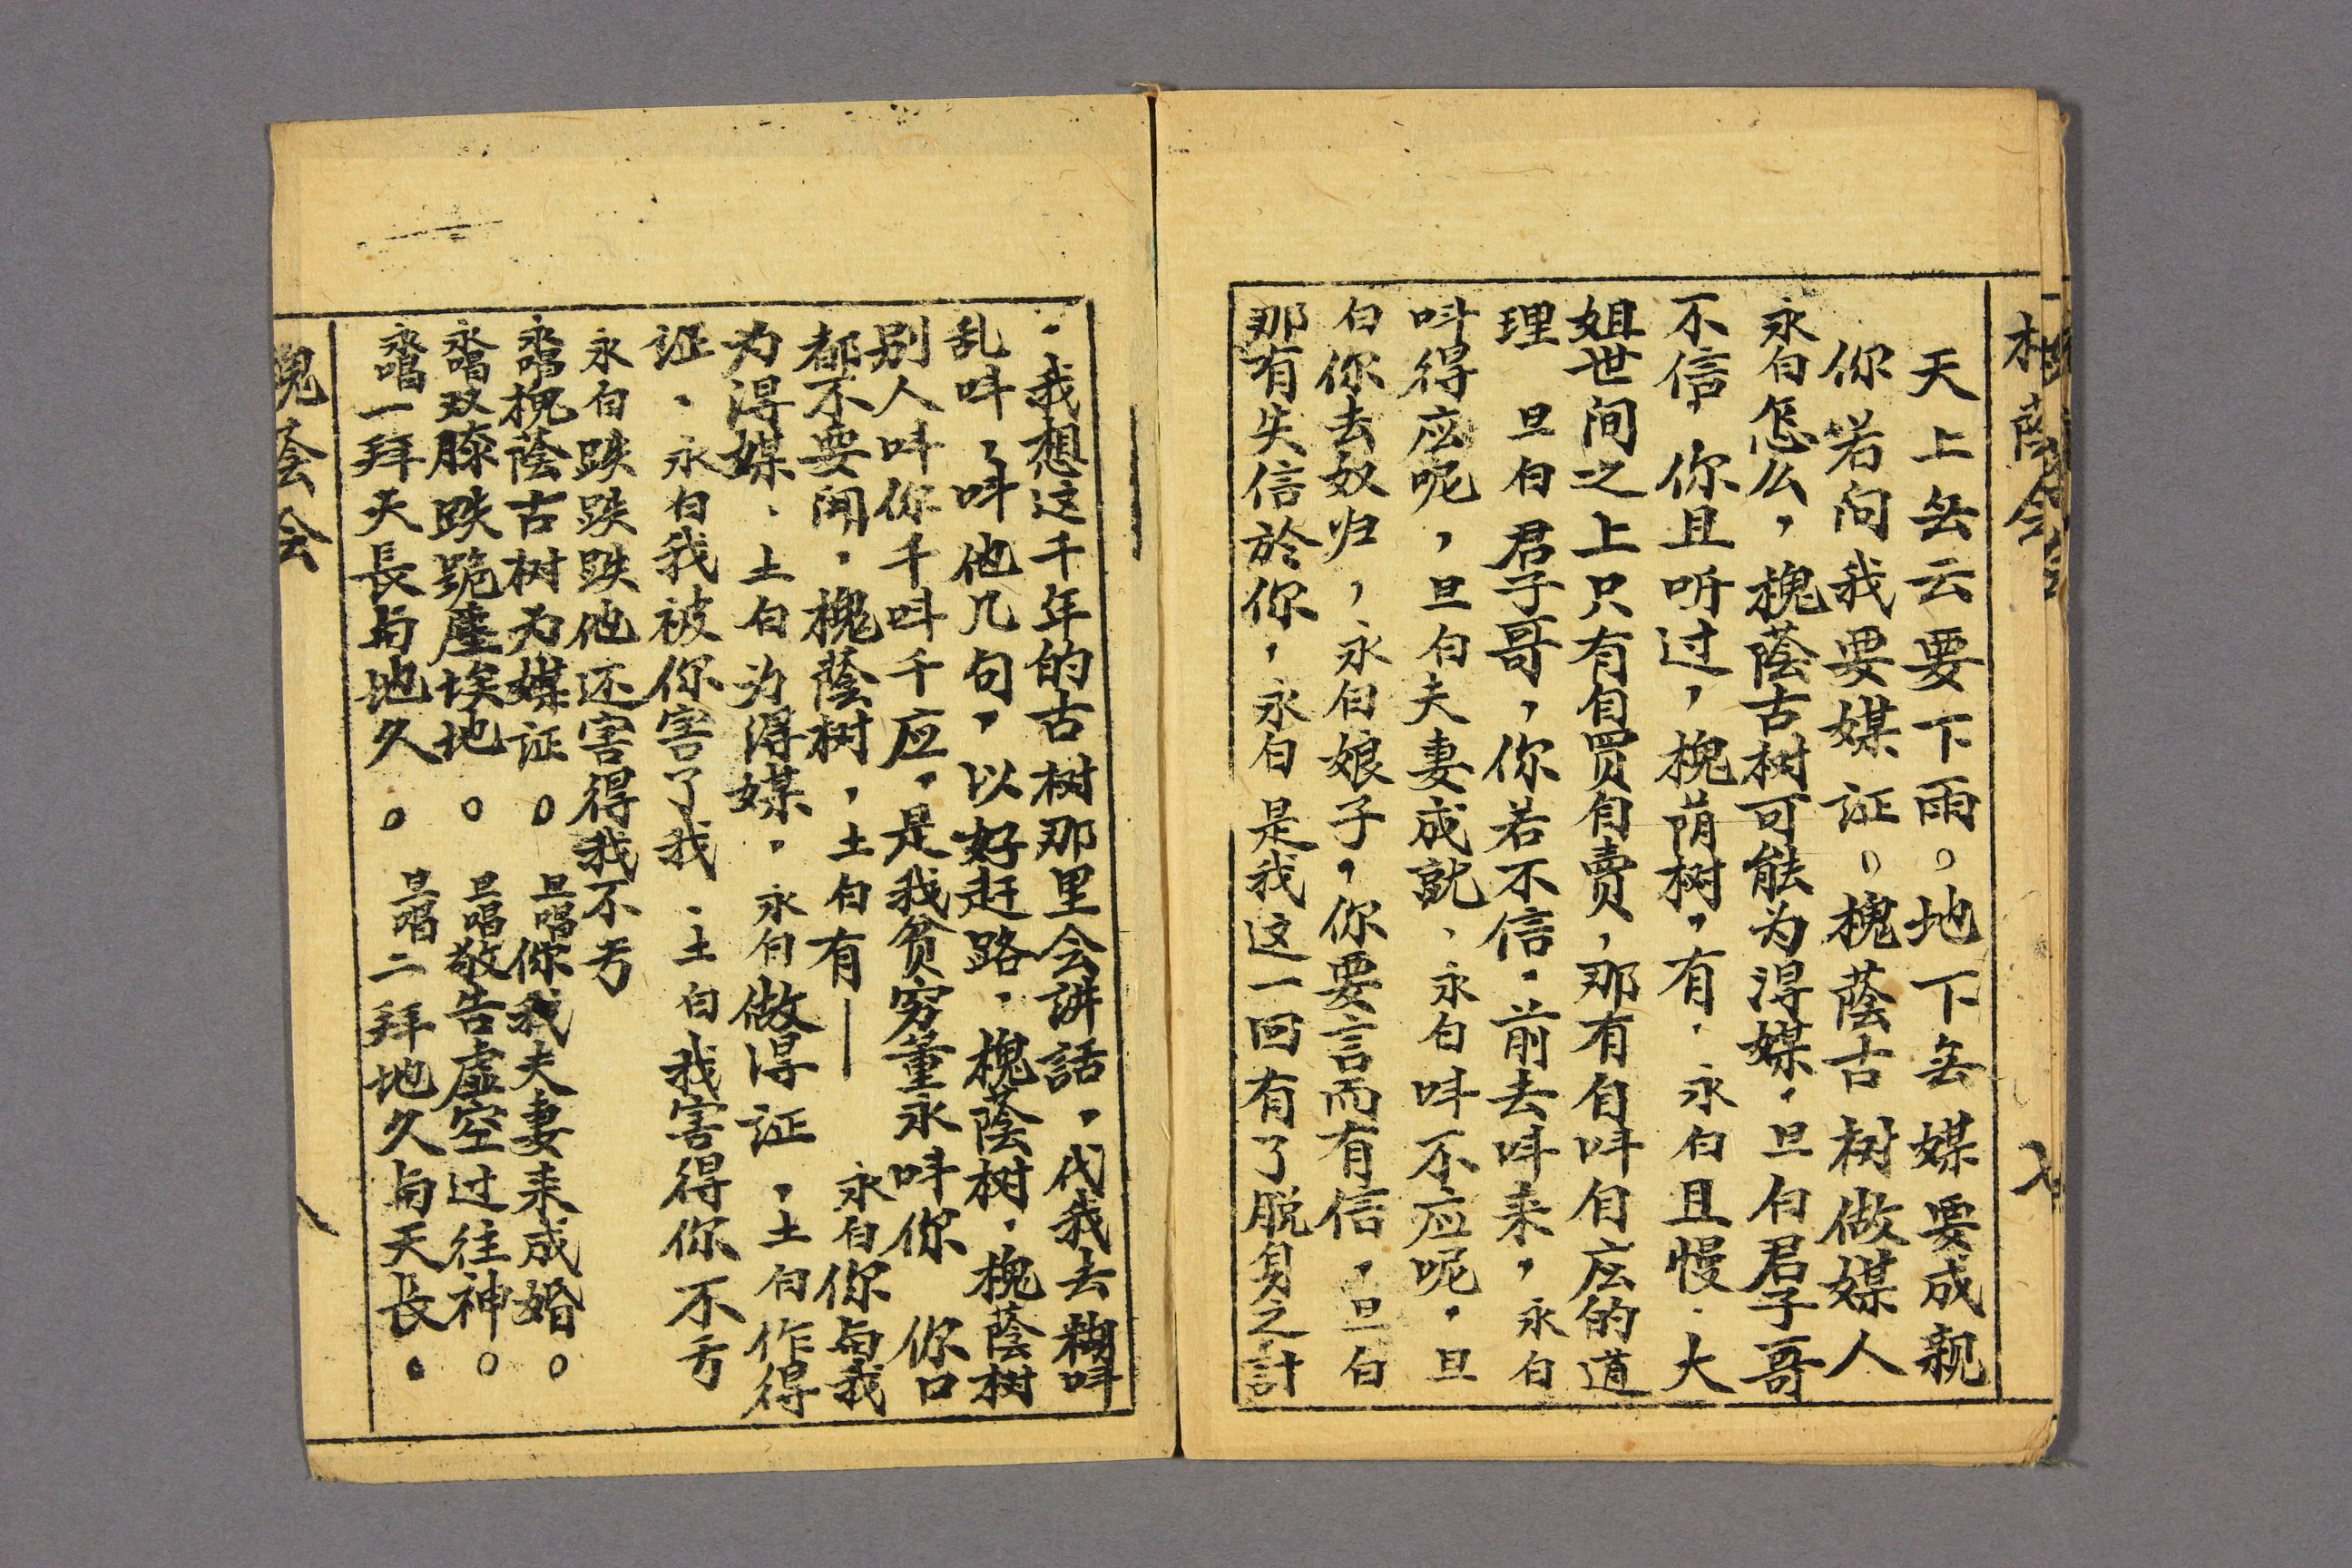 天上无云要下雨。地下无媒要成親
你若问我要媒证。槐蔭古树做媒人
永白怎么，槐蔭古树可能为得媒，旦白君子哥
不信，你且听过，槐荫树，有，永白且慢，大
姐世间之上只有自買自賣，那有自呌自应的道
理 旦白君子哥，你若不信，前去呌来，永白
呌得应呢，旦白夫妻成就、永白呌不应呢，旦
白你去奴归，永白娘子，你要言而有信，旦白
那有失信於你，永白是我这一回有了脱身之計
，我想这千年的古树那里会讲話，代我去糊呌
乱呌，呌他几句，以好赶路，槐蔭树，槐蔭树
别人呌你千呌千应，是我贫穷董永呌你 你口
都不要闻，槐蔭树，土白有—— 永白你与我
为得媒，土白为得媒，永白做得证，土白作得
证，永白我被你害了我，土白我害得你不亏
永白跌跌跌他还害得我不亏
永唱槐蔭古树为媒证。 旦唱你我夫妻来成婚。
永唱双膝跌跪塵埃地。 旦唱敬告虚空过往神。
永唱一拜天長与地久。 旦唱二拜地久与天长。
槐蔭会